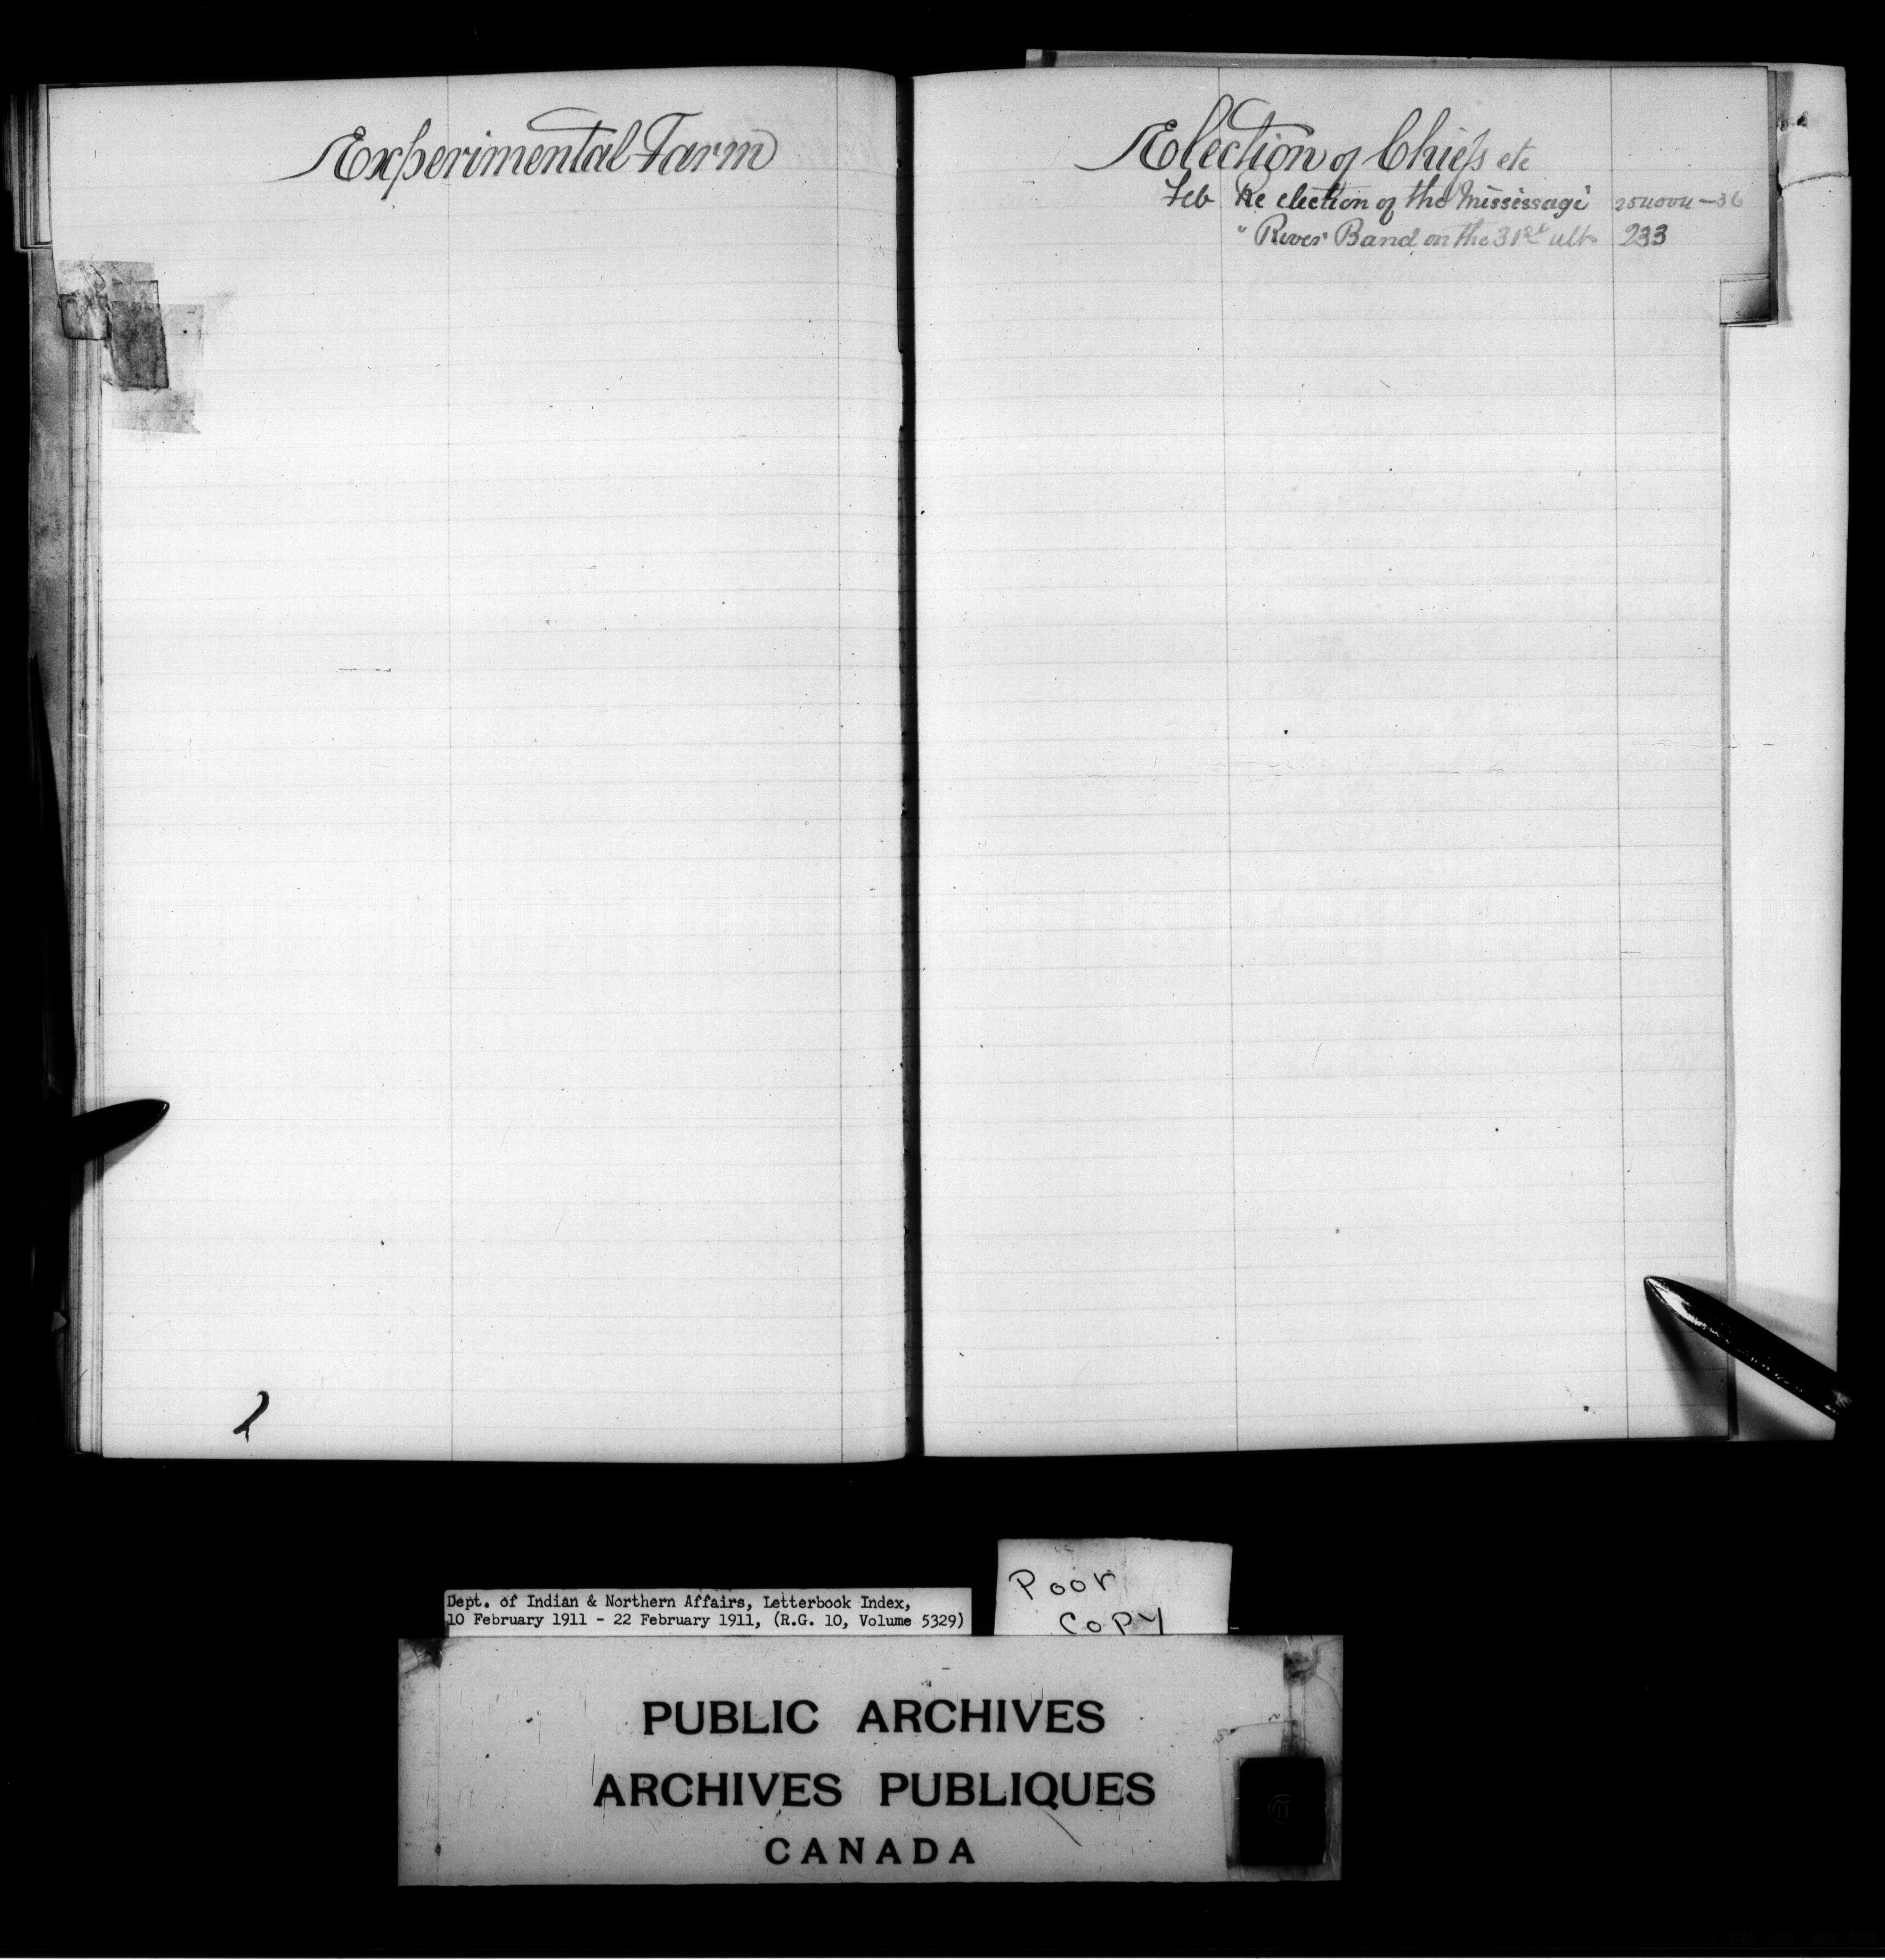 Experimental Farm
Election of Chiefs etc
Feb Re election of the Mississagi 254004-36
" River Band on the 31st ult 233
Poor
Copy
Dept. of Indian & Northern Affairs, Letterbook Index,
10 February 1911 - 22 February 1911, (R.G. 10, Volume 5329)
PUBLIC ARCHIVES
ARCHIVES PUBLIQUES
CANADA